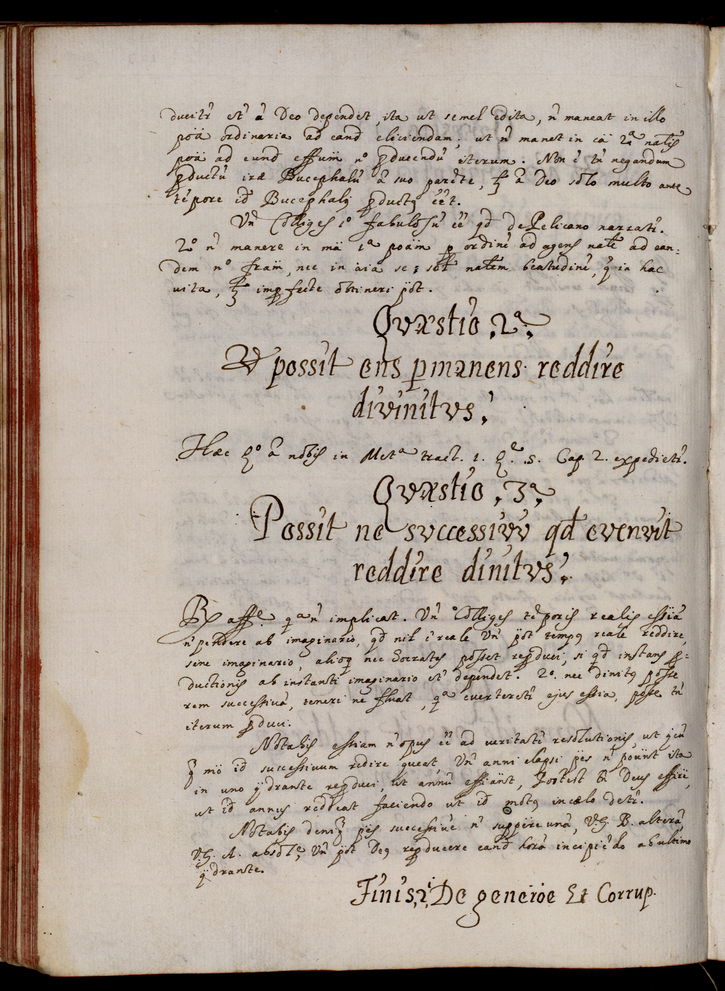 ducitr et à Deo dependet, ita ut semel edita, ñ maneat in illo
poã ordinaria ad eand eliciendam; ut ñ manet in cã 2ª natlis
poã ad eund effum nº pducendu iterum. Non ẽ tñ negandum
pductu iræ Bucephalu à suo parẽte, à Deo solo multo ante
tẽpore id Bucephalq pductq eẽt.
Vñ Colliges 1º fabulosũ eẽ qd de Pelicano narrati.
2º ñ manere in mã 1ª poãm p ordinẽ ad agens natle ad ean-
dem nº frãm, nec in aia se: natlem beatudinẽ, q in hac
vita, imperfecte obtineri põt.
Qvæstio, 2ª,
Vt possit ens pmanens reddire
divinitvs,
Hæc qº à nobis in Metª tract. 1. qe. 5. Cap. 2. expedietr.
Qvæstio, 3ª,
Possit ne svccessivũ qd evenvit
reddire dinitvs,
R affe. qª ñ implicat. Vñ Colliges tẽporis realis essiã
ñ pendere ab imaginario, qd nil ẽ reale Vñ põt tempq reale reddire,
sine imaginario, alioq nec Socrates posset repduci, si qd instans p-
ductionis ab instanti imaginario et dependet. 2º. nec dinitq posse
rem successivã, teneri ne fluat, qª everteretr ejus essia, posse tñ
iterum pduci.
Notabis etiam ñ opus eẽ ad veritatẽ resolutionis ut
q mõ id successivum redire queat Vñ anni elapsi ptes ñ põunt ita
in uno qdrante repduci, ut annũ efficiant, Potest tñ Deus efficere,
ut id annus reddeat faciendo ut id motq in cælo detr.
Notabis deniq ptes successivè ñ suppõere unã, V.G. B. alterã
V.G. A. absolte, Vñ põt Deq repducere eand horã incipiẽdo ab ultimo
qdrante.
Finis, De generõe Et Corrup.